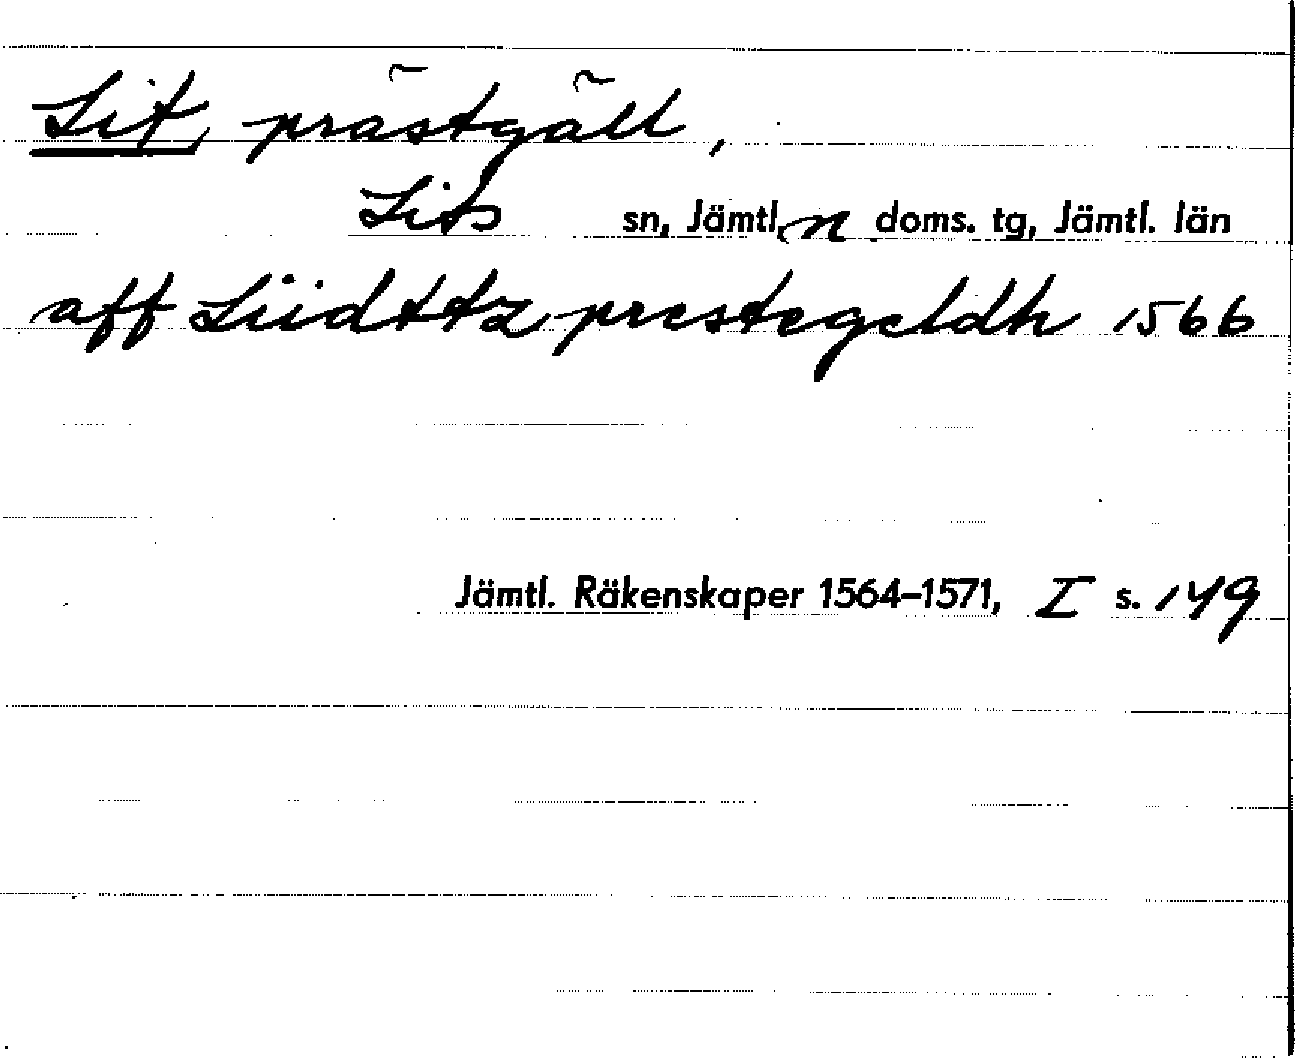 Lit, prästgäll,
Lits sn, Jämtl. n doms. tg, Jämtl. län
aff Liidttz prestegeldh 1566
Jämtl. Räkenskaper 1564–1571, I s. 149